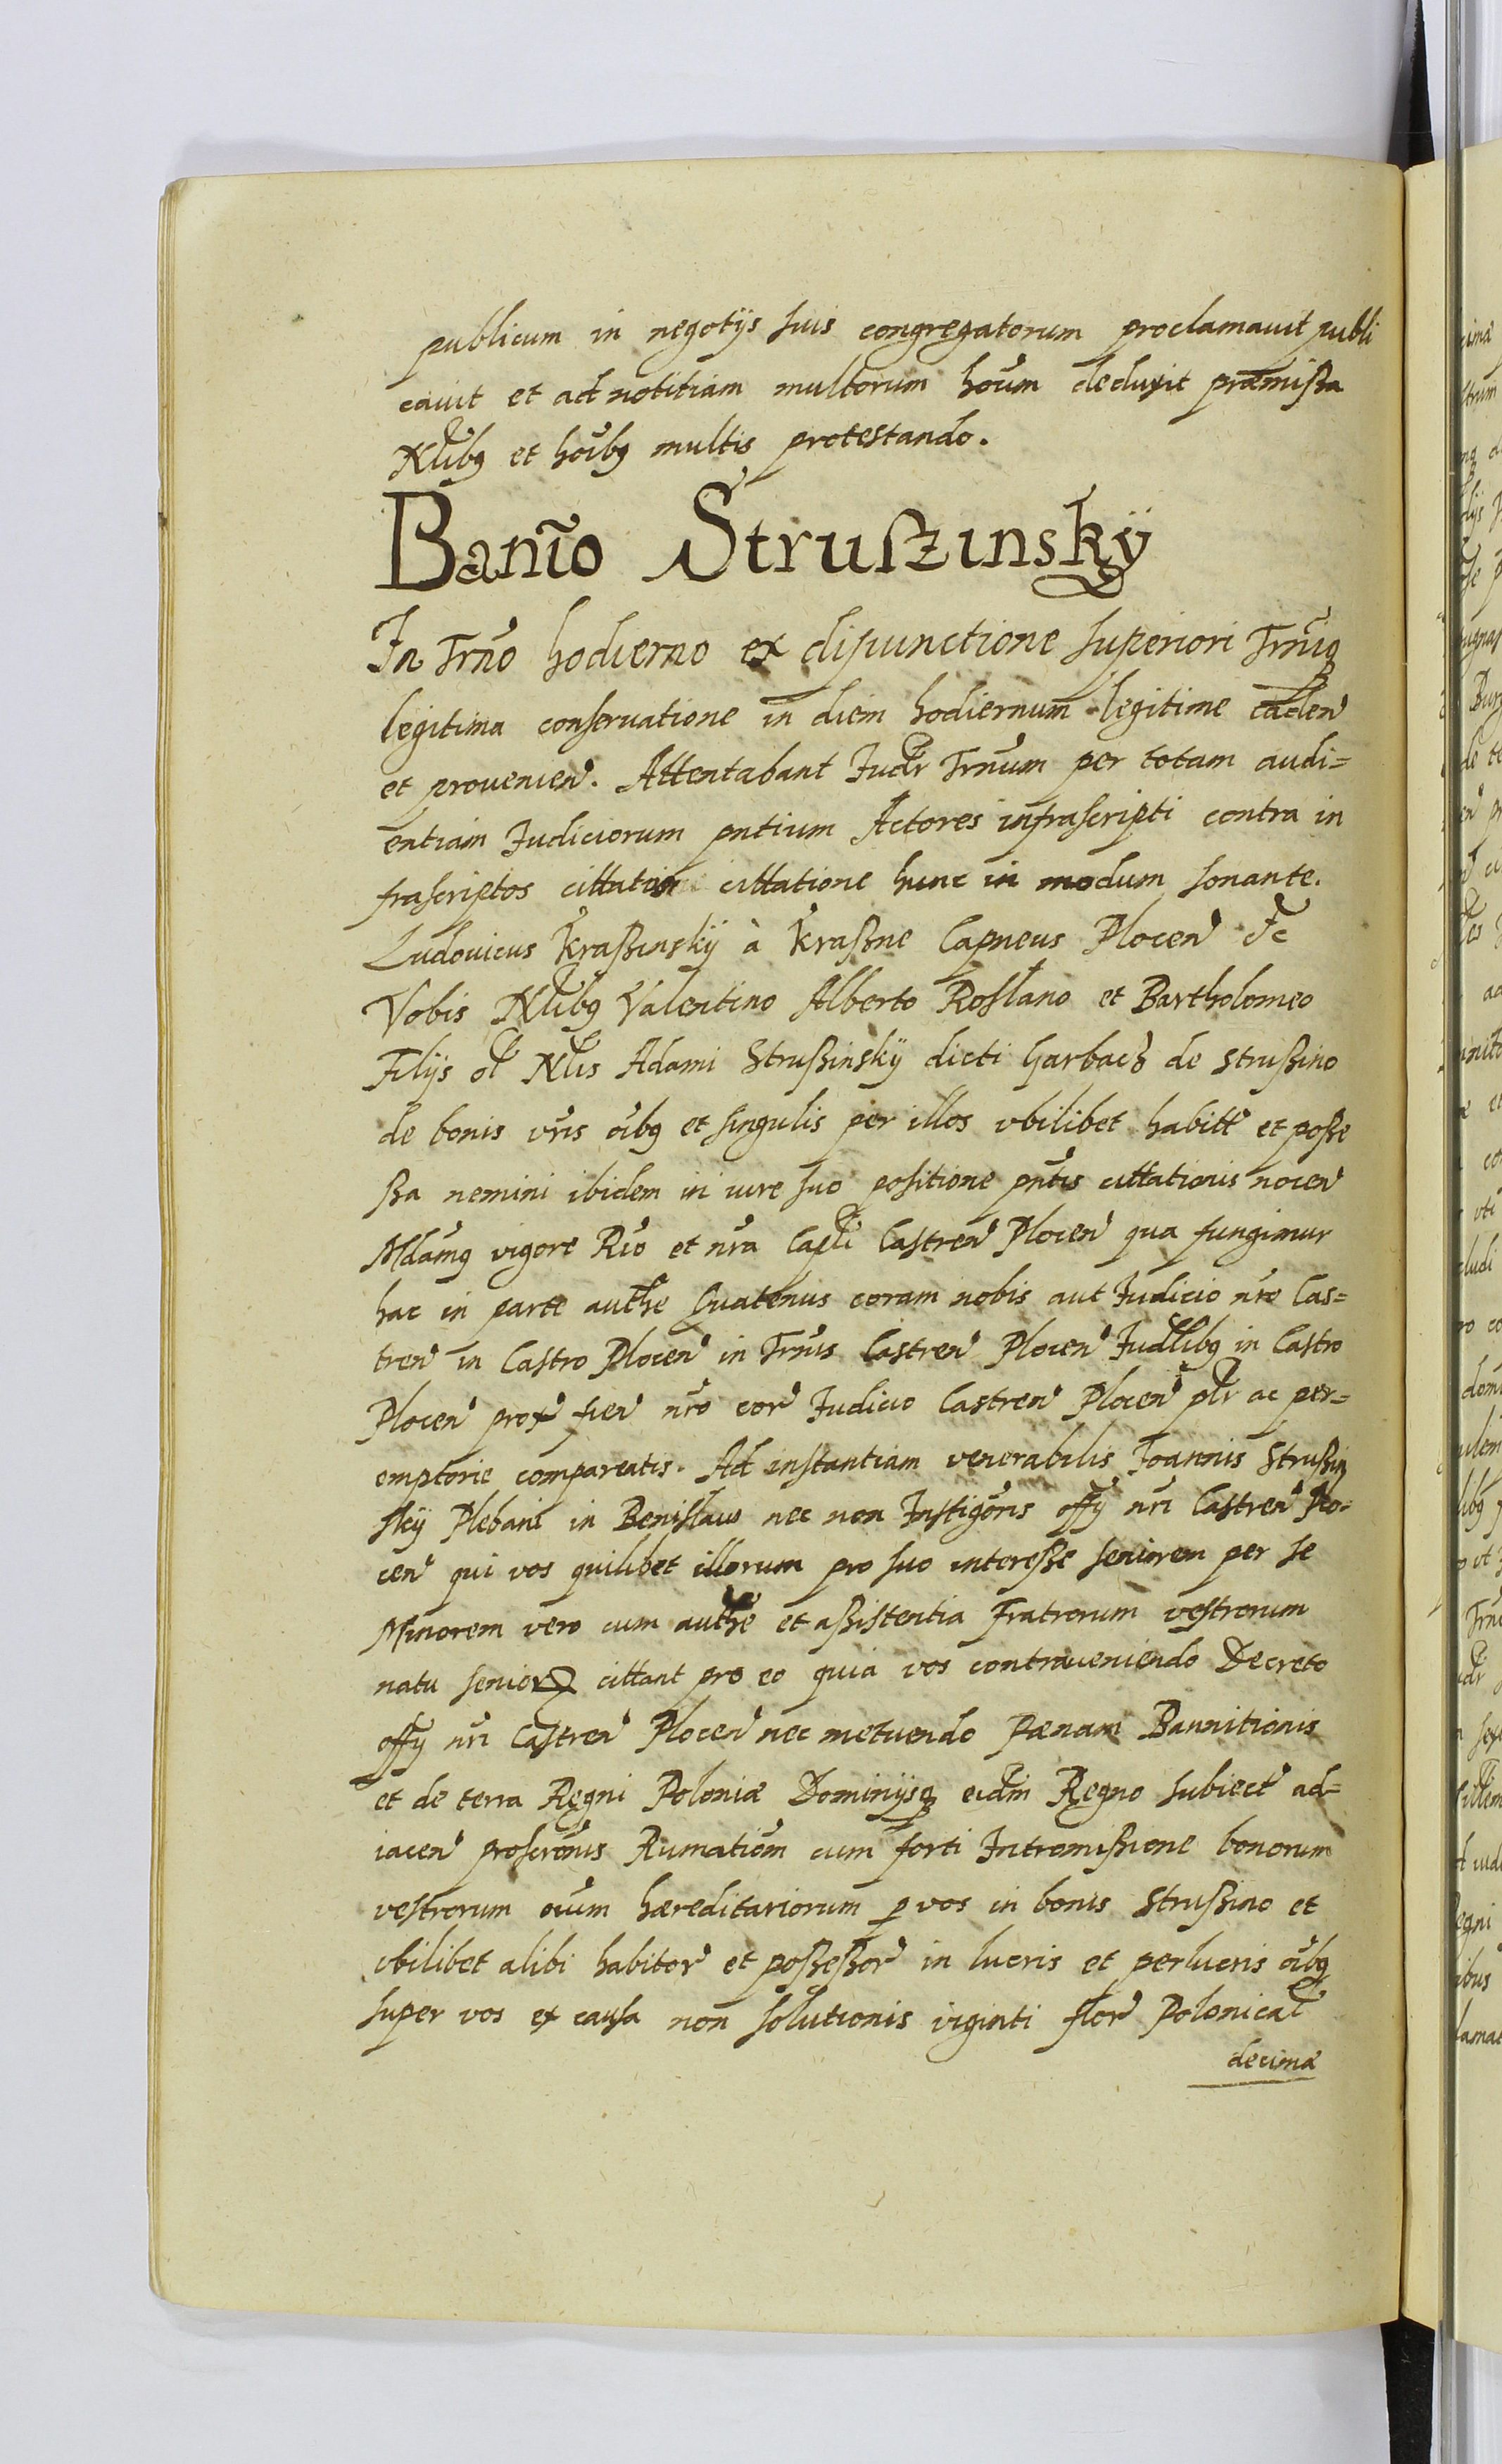 publicum in negotijs suis congregatorum proclamauit publi
cauit et ad notitiam multorum hoīum deduxit præmissa
Nlibꝫ et hoībꝫ multis protestando.
Banīo Struszinskÿ
In Trnō hodierno ex dispunctione superiori Trniꝗ
legitima conseruatione in diem hodiernum legitime caden
et prouenien. Attentabant Judr Trnūm per totam audi=
entiam Judiciorum pntium Actores infrascripti contra in
frascriptos cittatos cittatione hunc in modum sonante.
Ludouicus Kraßinskÿ à Kraßne Capneus Plocen &c
Vobis Nlibꝫ Valentino Alberto Roslano et Bartholomeo
Filijs ol Nlis Adami Strußinskÿ dicti Garbacz de Strußino
de bonis vrīs oībꝫ et singulis per illos vbilibet habitt et poße
ßa nemini ibidem in iure suo positione pntīs cittationis nocen
Mdamꝫ vigore Rīo et nrā Capli Castren Plocen qua fungimur
hac in parte authe Quatenus coram nobis aut Judicio nrō Cas=
tren in Castro Plocen in Trnīs Castren Plocen Judlibꝫ in Castro
Plocen prox fien nrō cor Judicio Castren Plocen plr ac per=
emptorie compareatis. Ad instantiam venerabilis Joannis Strußin
skÿ Plebani in Benislaw nec non Instigōris offÿ nrī Castren Plo=
cen qui vos quilibet illorum pro suo intereße seniorem per se
Minorem vero cum authe et aßistentia Fratrorum vestrorum
natu senior cittant pro eo quia vos contraueniendo Decreto
offÿ nrī Castren Plocen nec metuendo Pænam Bannitionis
et de terra Regni Poloniæ Dominijsꝗ eidm Regno subiect ad=
iacen proscrōnis Rumatiōm cum forti Intromißione bonorum
vestrorum oīum hæreditariorum p vos in bonis Strußino et
vbilibet alibi habitor et poßeßor in lucris et perlucris oībꝫ
super vos ex causa non solutionis viginti flor Polonical
decimæ